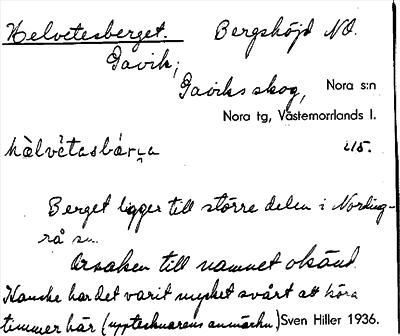 Helvetesberget. Bergshöjd NO.
Gavik;
Gaviks skog, Nora s:n
Nora tg, Västemorrlands l.
hälvètasbár̥ɟa 115.
Berget ligger till större delen i Nording-
rå sn.
Orsaken till namnet okänd.
Kanske har det varit mycket svårt att köra
timmer här (upptecknarens anmärkn.) Sven Hiller 1936.